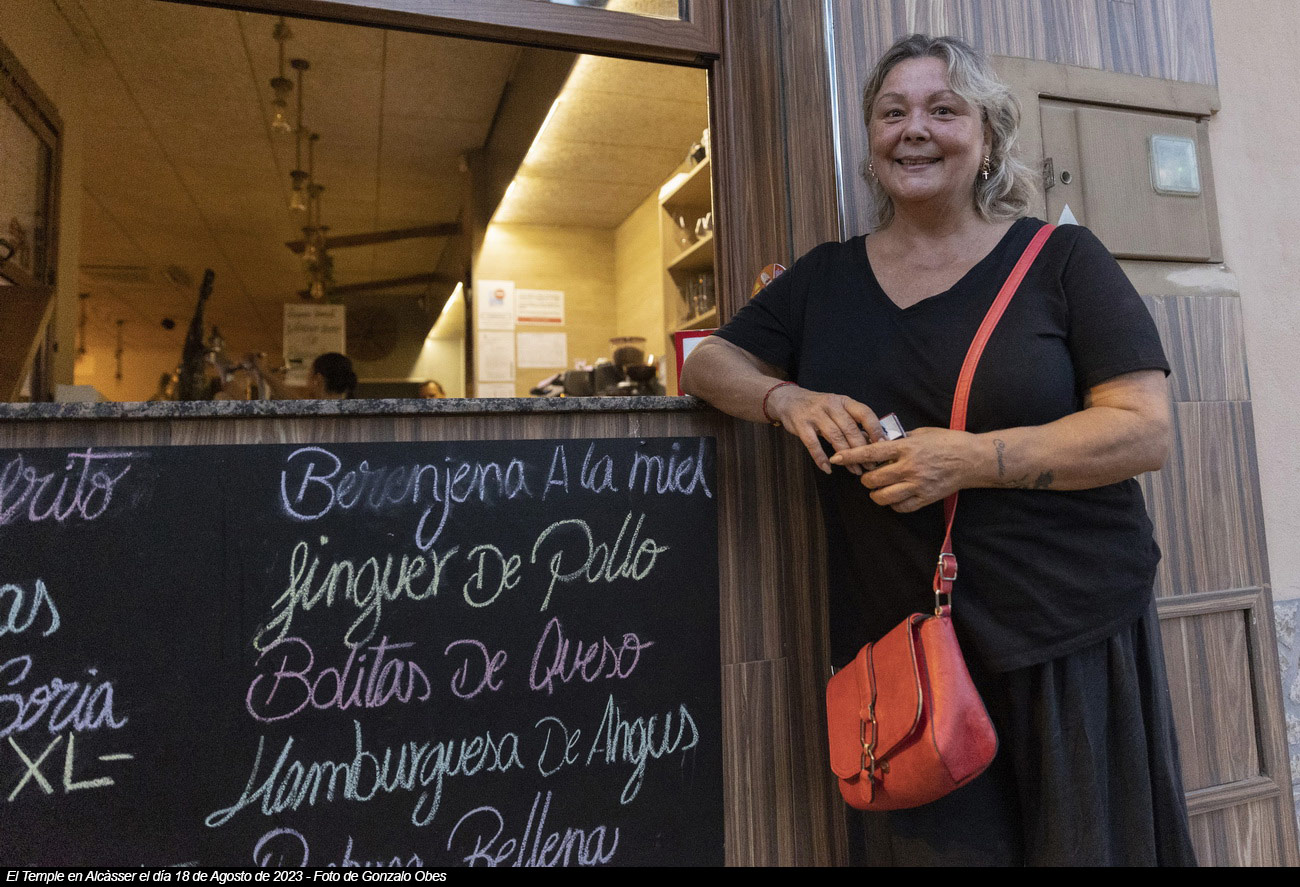 Berenjena A la miel
finguer De Pollo
Bolitas De Queso
Soria
Hamburguesa De Angus
XL-
Rellena
El Temple en Alcàsser el día 18 de Agosto de 2023 - Foto de Gonzalo Obes